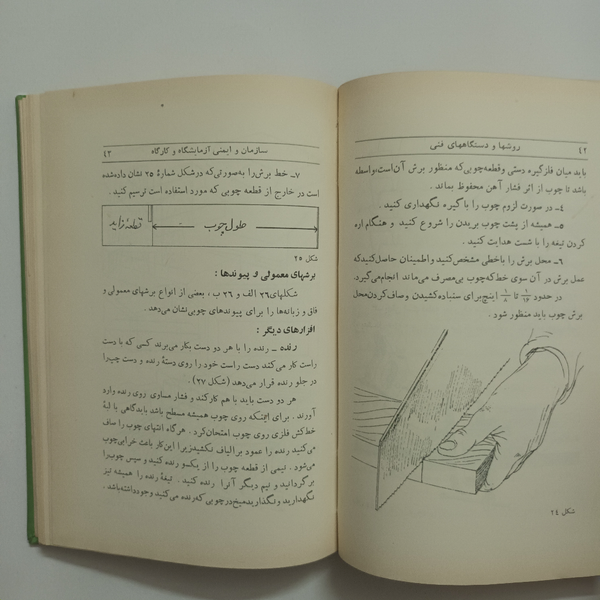 ۴۲
روشها و دستگاههای فنی
باید میان فلزگیره دستی و قطعه چوبی که منظور برش آن است، واسطه
باشد تا چوب از اثر فشار آهن محفوظ بماند.
۴ــ در صورت لزوم چوب را با گیره نگهداری کنید.
۵ــ همیشه از پشت چوب بریدن را شروع کنید و هنگام اره
کردن تیغه را با شست هدایت کنید.
۶ــ محل برش را با خطی مشخص کنید و اطمینان حاصل کنید که
عمل برش در آن سوی خط که چوب بی‌مصرف می‌ماند انجام می‌گیرد.
در حدود ۱/۱۶ تا ۱/۸ اینچ برای سنباده کشیدن و صاف کردن محل
برش چوب باید منظور شود.
شکل ۲۴
سازمان و ایمنی آزمایشگاه و کارگاه
۴۳
۷ــ خط برش را به صورتی که در شکل شمارهٔ ۲۵ نشان داده شده
است در خارج از قطعه چوبی که مورد استفاده است ترسیم کنید.
طول چوب
قطعهٔ زاید
شکل ۲۵
برشهای معمولی و پیوندها:
شکلهای ۲۶ الف و ۲۶ ب، بعضی از انواع برشهای معمولی و
فاق و زبانه‌ها را برای پیوندهای چوبی نشان می‌دهد.
افزارهای دیگر:
رنده ــ رنده را با هر دو دست بکار می‌برند کسی که با دست
راست کار می‌کند دست راست خود را روی دستهٔ رنده و دست چپ را
در جلو رنده قرار می‌دهد (شکل ۲۷).
هر دو دست باید با هم کار کنند و فشار مساوی روی رنده وارد
آورند. برای اینکه روی چوب همیشه مسطح باشد بایدگاهی با لبهٔ
خط‌کش فلزی روی چوب امتحان کرد. هرگاه انتهای چوب را صاف
می‌کنید رنده را عمود بر الیاف نکشید زیرا این کار باعث خرابی چوب
می‌شود. نیمی از قطعه چوب را از یکسو رنده کنید و سپس چوب را
برگردانید و نیم دیگر آنرا رنده کنید. تیغهٔ رنده را همیشه تیز
نگهدارید و نگذارید میخ در چوبی که رنده می‌کنید وجود داشته باشد.